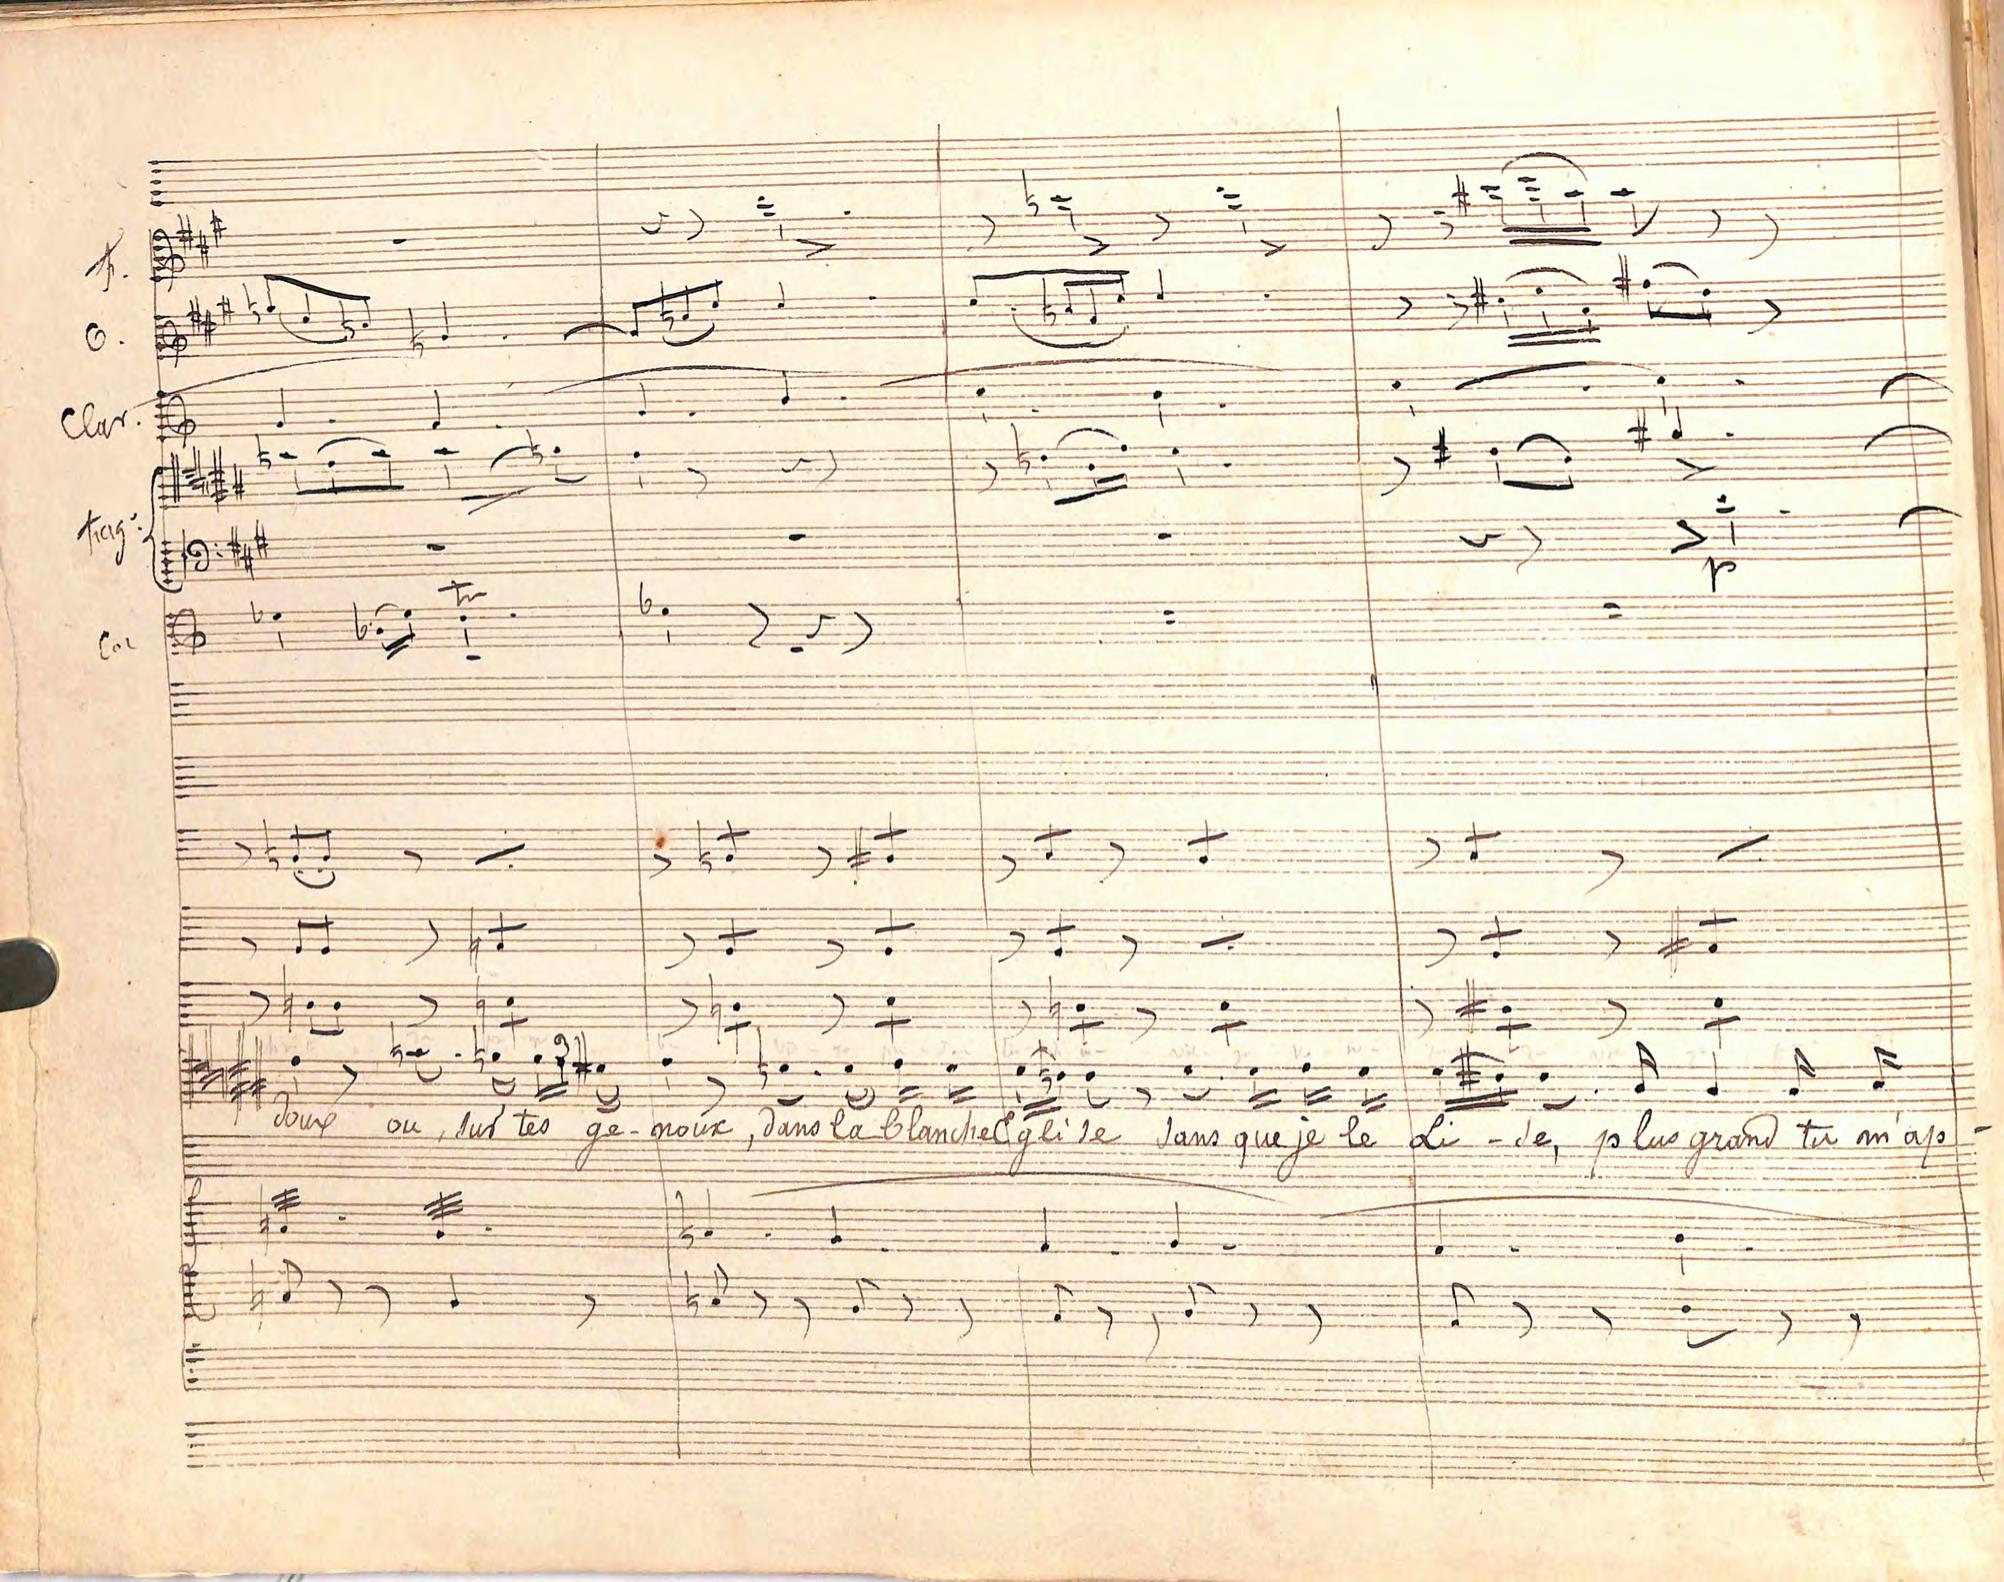 fl.
O.
Clar.
fag:
Cor
tr
p
3
doux ou, sur tes ge-noux, dans la blanche Eglise sans que je le Li-se, plus grand tu m'ap-